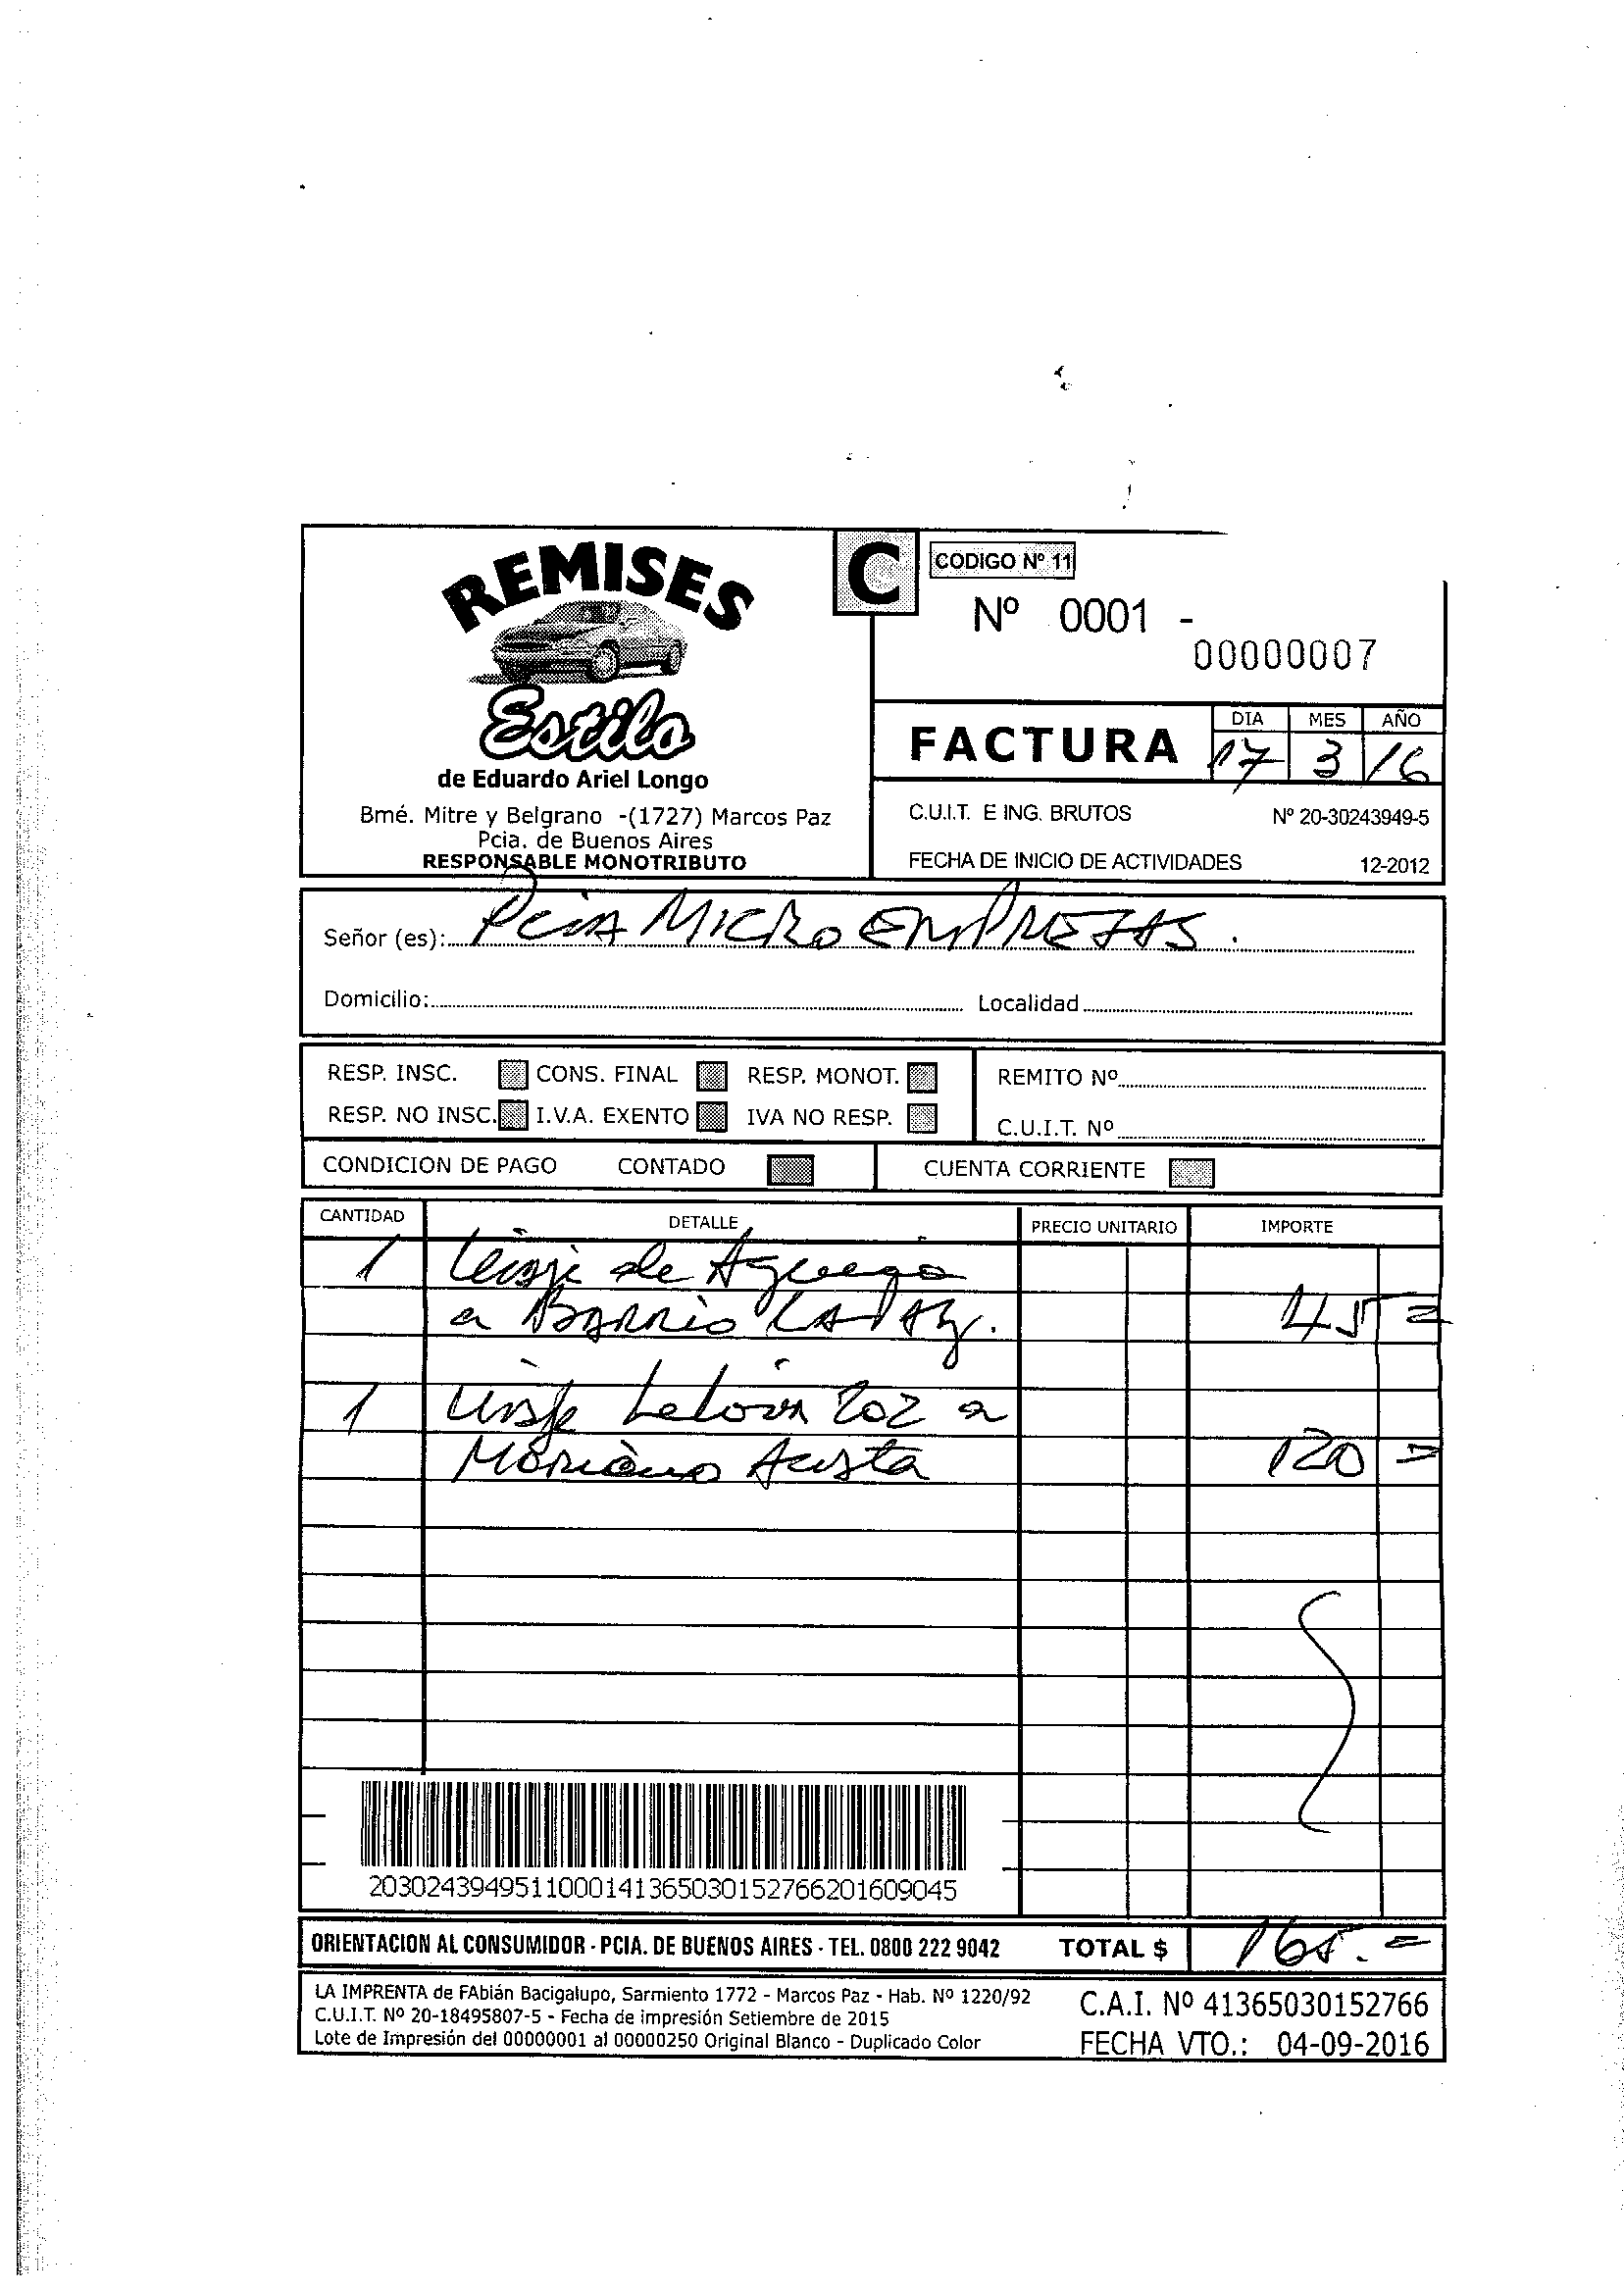 REMISES
Estilo
de Eduardo Ariel Longo
Bmé. Mitre y Belgrano -(1727) Marcos Paz
Pcia. de Buenos Aires
RESPONSABLE MONOTRIBUTO
C
CODIGO Nº 11
Nº 0001 -
00000007
FACTURA
DIA MES AÑO
17 3 16
C.U.I.T. E ING. BRUTOS Nº 20-30243949-5
FECHA DE INICIO DE ACTIVIDADES 12-2012
Señor (es): Pcia MICROEMPRESAS.
Domicilio: Localidad
RESP. INSC. CONS. FINAL RESP. MONOT.
RESP. NO INSC. I.V.A. EXENTO IVA NO RESP.
REMITO Nº
C.U.I.T. Nº
CONDICION DE PAGO CONTADO CUENTA CORRIENTE
CANTIDAD DETALLE PRECIO UNITARIO IMPORTE
1 Viaje de
a BARRIO LA PAZ. 45=
1 Viaje 202 a
Mariano Acosta 120=
2030243949511000141365030152766201609045
ORIENTACION AL CONSUMIDOR - PCIA. DE BUENOS AIRES - TEL. 0800 222 9042
TOTAL $ 165.=
LA IMPRENTA de FAbián Bacigalupo, Sarmiento 1772 - Marcos Paz - Hab. Nº 1220/92
C.U.I.T. Nº 20-18495807-5 - Fecha de impresión Setiembre de 2015
Lote de Impresión del 00000001 al 00000250 Original Blanco - Duplicado Color
C.A.I. Nº 41365030152766
FECHA VTO.: 04-09-2016